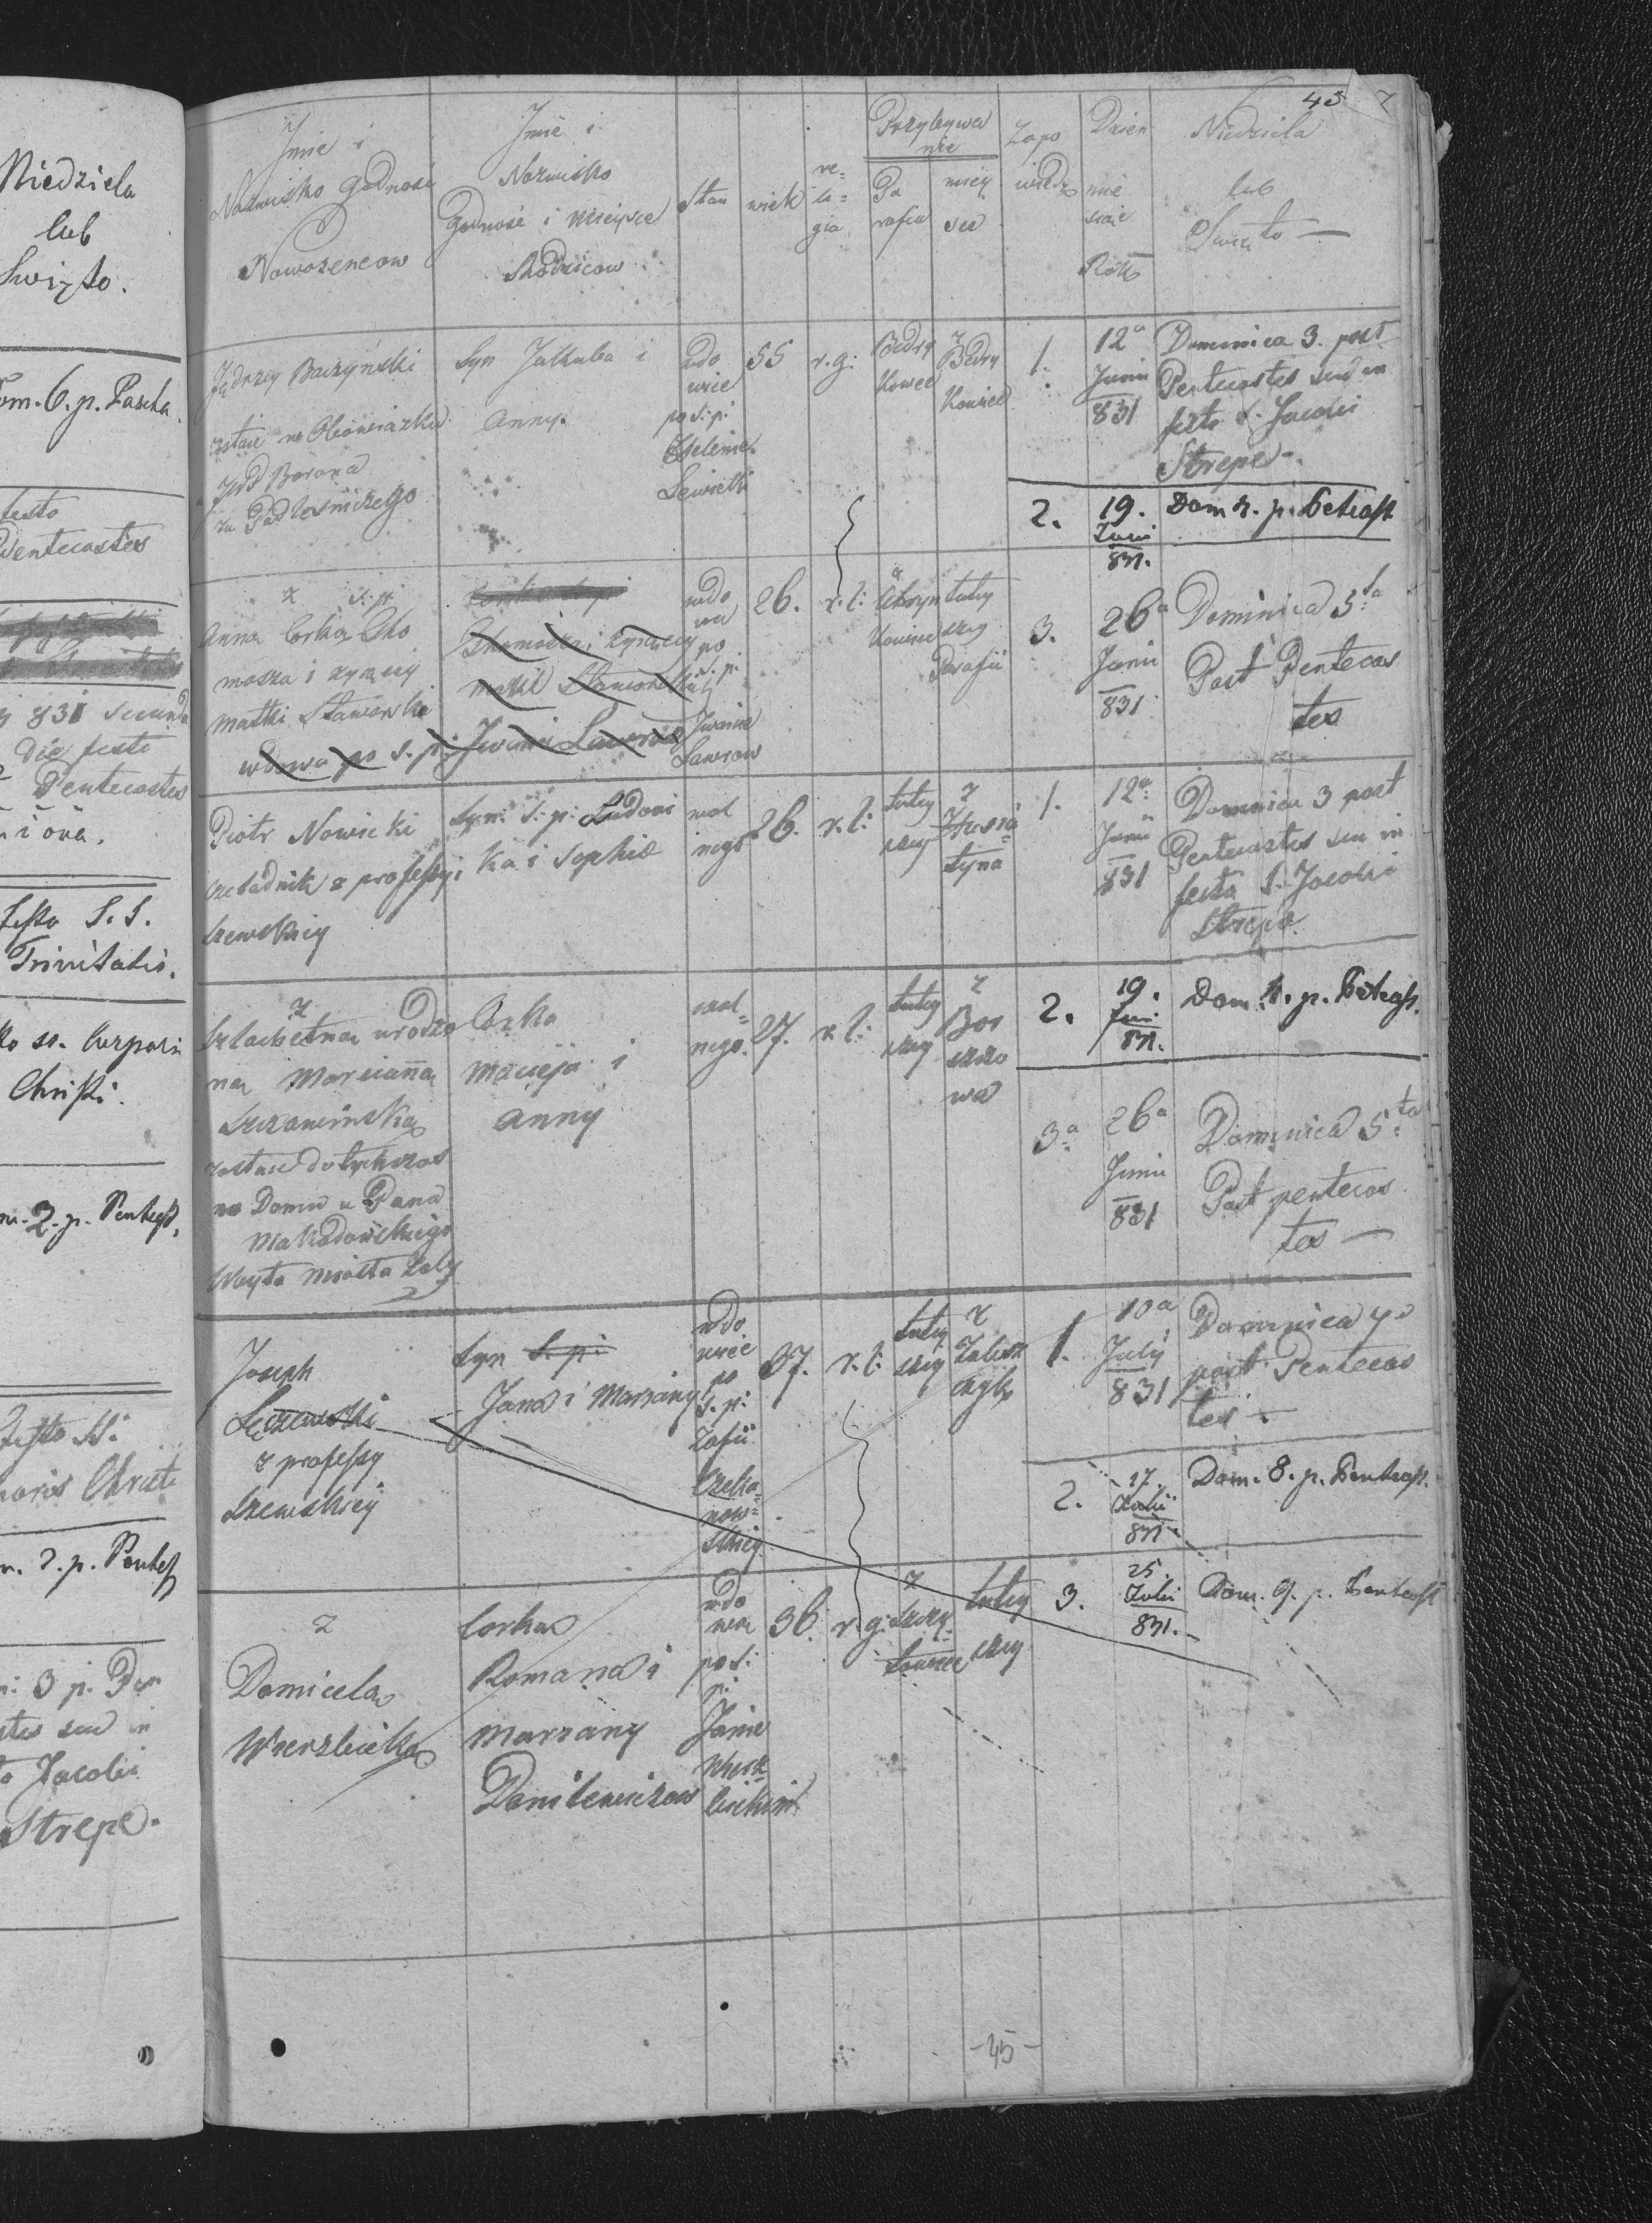 Niedziela
lub
Swięto.
Dom. 6. p. Pascha
festo
Pentecostes
831 secunda
die festi
Pentecostes
festo S. S.
Trinitatis.
Christi.
2. p. Pentest,
festo SS.
Christi
2. p. Pentest
3 p. Pen
stes seu in
Jacobi
Strepe.
45 7
Imie i
Nazwisko Godnosć
Nowozencow
Imie i
Nazwisko
Godnosć i Mieysce
Rodzicow
Stan
wiek
re=
li=
gia
Przybywa
nie
Pa
rafia
miey
sce
Zapo
wiedz
Dzien
mie
siąc
Rok
Niedziela
lub
Swięto —
Jędrzey Baczyński
zostaie w Olcowiazku
JWP Barona
za Podlesniczego
Syn Jakuba i
Anny.
wdo
wiec
po s: p:
Helenie
Lewicki
55
r. g:
Bedry
kowce
z
Bedry
kowiec
1.
12a
Junii
831
Dominica 3. post
Pentecostes seu in
festo S. Jacobi
Strepe.
2.
19.
Junii
831.
Dom 4. p. Petcast
z s. p.
Anna Corka Tho
masza i zyiącey
matki Stawarski
wdowa po s. p.
Thomasza i zyiącey
matki
Iwanie
wdo
wa
po
s. p:
Iwanie
Lawrow
26.
r. l:
tutey
szey
Parafii
3.
26a
Junii
831
Dominica 5ta
Post Pentecos
tes
Piotr Nowicki
czeladnik z professyi
szewskiey
Syn s. p: Ludowi
ka i Sophie
wol
nego
26.
r. l:
tutey
szey
z
Husia
tyna
1.
12a
Junii
831
Dominica 3 post
Pentecostes seu in
festo S. Jacobi
Strepe
z
Szlachetna urodzo
na Marcianna
zostaie dotychczas
w Domu u Pana
Makodońskiego
Woyta miasta Zaly
Corka
Macieja i
Anny
wol=
nego.
27.
r. l:
tutey
szey
z
Bor
szczo
wa
2.
19.
Juni
831.
Dom. 4. p. Petcast.
3a
26a
Junii
831
Dominica 5ta
Post pentecos
tes —
Joseph
z professy
szewskiey
Syn s. p:
Jana i Maryany
wdo
wiec
po
s. p:
Zofii
Czeka=
now=
skiey
37.
r. l:
tutey
szey
z
Zalesz
czyk
1.
10a
July
831
Dominica 7a
post Pentecos
tes —
2.
17.
Julii
831
Dom. 8. p. Pentecst.
z
Domicela
Wierzbicka
Corka
Romana i
Maryany
Danilewiczow
wdo
wa
po s:
p:
Janie
Wierz
bickim
36.
r. g:
z
tutey
szey
3.
25.
Julii
831.
Dom. 9. p. Pentecst
-45-